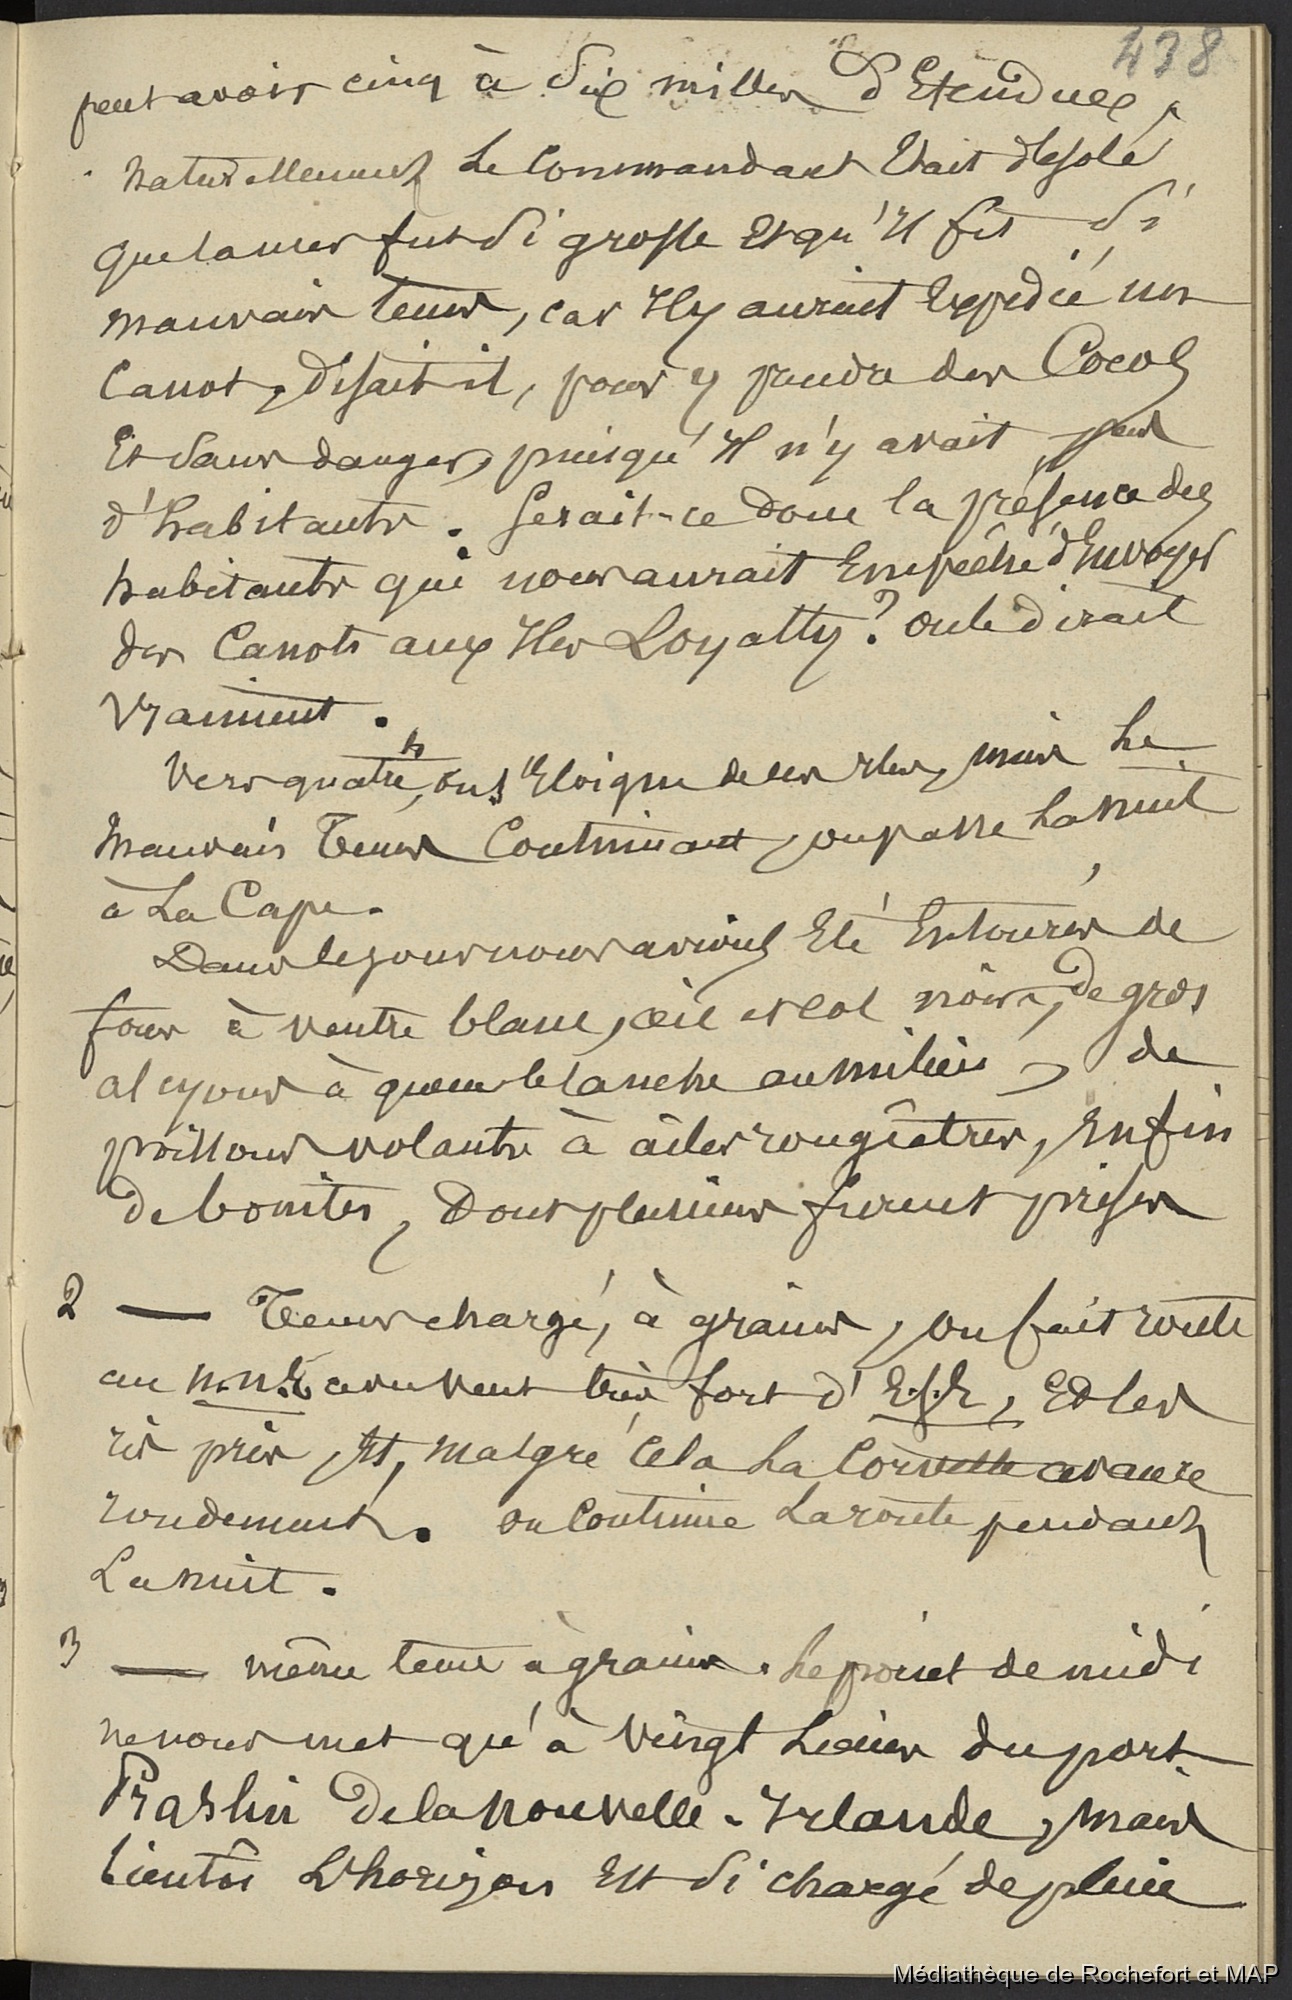 438
peut avoir cinq à six milles d'Etendue,
Naturellement Le Commandant Etait désolé
que la mer fut si grosse Et qu'Il fit si
mauvais tems, car Il y aurait Expédié un
Canot, disait-il, pour y prendre des Cocos
Et sans danger, puisqu'Il n'y avait pas
d'habitants. Serait-ce donc la présence des
habitants qui nous aurait Empêché d'Envoyer
des Canots aux Iles Loyalty? On le dirait
vraiment.
Vers quatre h, on s'Eloigne de ces Iles, mais Le
mauvais Tems Continuant, on passe La nuit
à La Cape.
Dans le jour nous avions Eté Entourés de
fous à ventre blanc, aile et col noirs, de gros
alcyons à queue blanche au milieu, de
poissons volants à ailes rougeâtres, Enfin
de bonites, Dont plusieurs furent prises
2 — Tems chargé, à grains, on fait route
au N.N.E avec vent très fort d'E.S.E, Et les
ris pris, Et, malgré Cela La Corvette avance
rondement. On Continue La route pendant
La nuit.
3 — même tems à grains. Le point de midi
ne nous met qu'à vingt Lieues du port
Praslin De la Nouvelle-Irlande, mais
bientôt L'horizon Est si chargé de pluie
Médiathèque de Rochefort et MAP